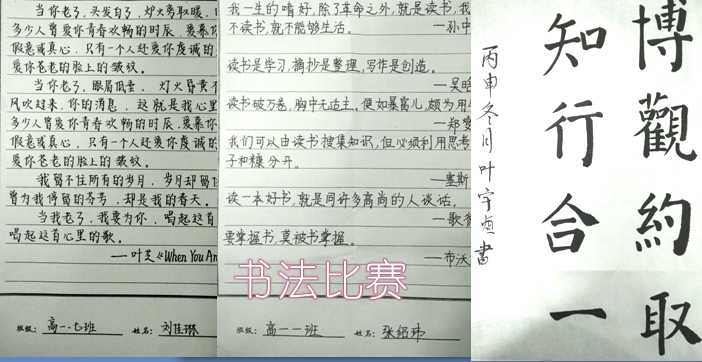 当你老了,头发白了,炉火旁取暖,
多少人曾爱你青春欢畅的时辰,爱慕你
假意或真心,只有一个人还爱你虔诚的
爱你苍老的脸上的皱纹。
当你老了,眼眉低垂,灯火昏黄不
风吹过来,你的消息,这就是我心里
多少人曾爱你青春欢畅的时辰,爱慕你
假意或真心,只有一个人还爱你虔诚的
爱你苍老的脸上的皱纹。
我留不住所有的岁月,岁月却留住
曾为我停留的芬芳,却是我的春天。
当我老了,我要为你,唱起这首
唱起这首心里的歌。
——叶芝《When You An
班级:高一.七班 姓名:刘佳琳
我一生的嗜好,除了革命之外,就是读书,我
不读书,就不能够生活。
—孙中
读书是学习,摘抄是整理,写作是创造。
—吴晗
读书破万卷,胸中无适主,便如暴富儿,颇为用
—郑燮
我们可以由读书搜集知识,但必须利用思考
子和糠分开。
—塞斯
读一本好书,就是同许多高尚的人谈话。
—歌德
要掌握书,莫被书掌握。
—布沃
书法比赛
班级:高一一班 姓名:张绍玮
博觀約取
知行合一
丙申冬月叶宇恒書